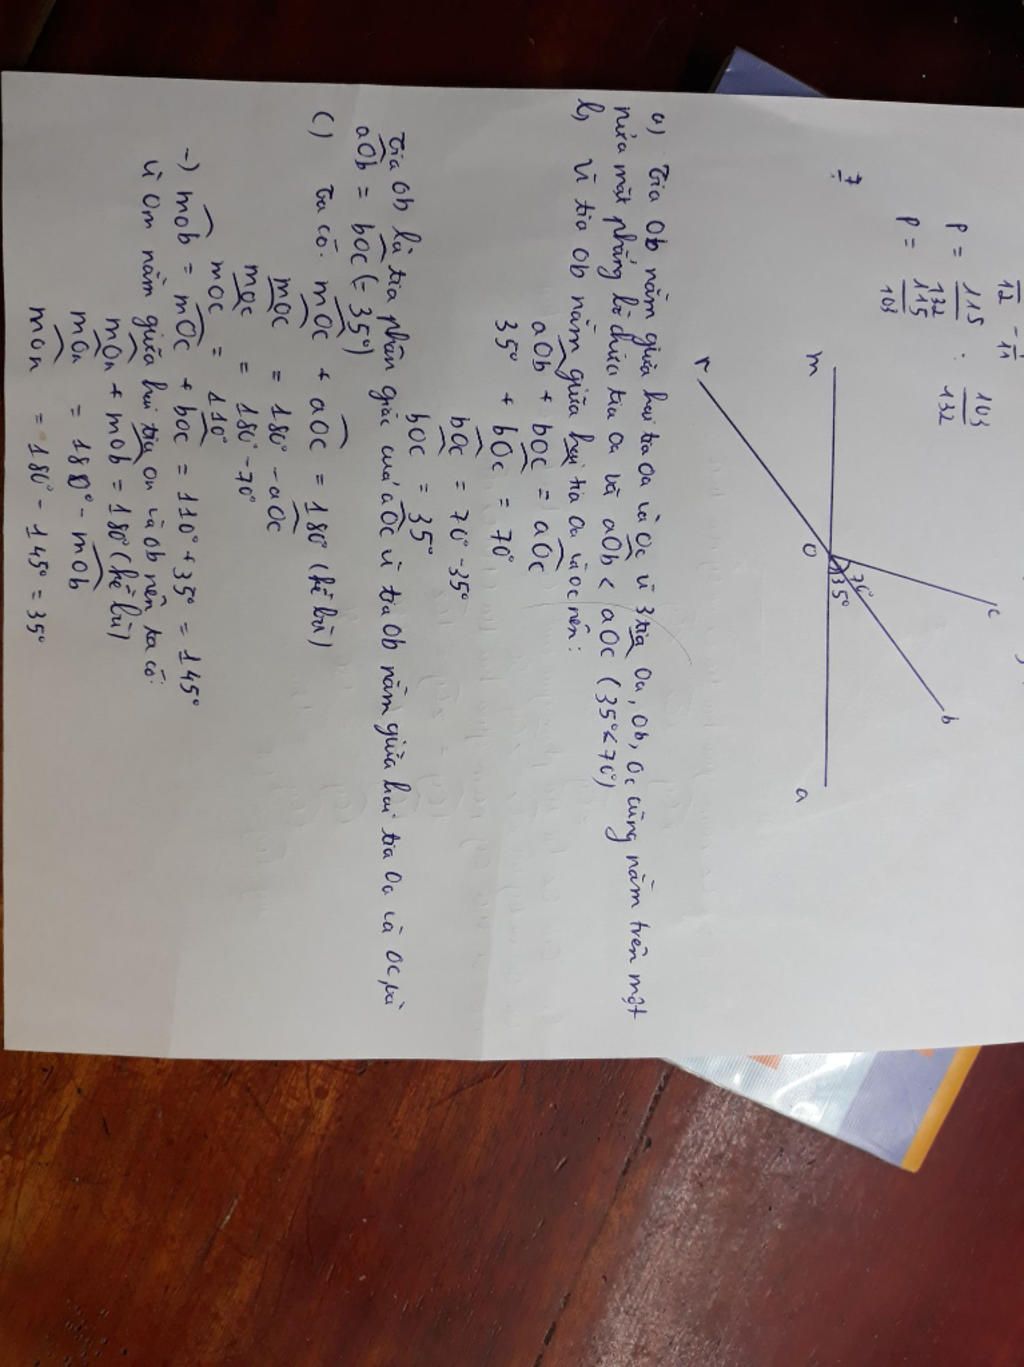 12 - 11
P = 115/132 : 103/132
P = 115/103
7
m
n
O
70°
35°
c
b
a
a) Tia Ob nằm giữa hai tia Oa và Oc vì 3 tia Oa, Ob, Oc cùng nằm trên một
nửa mặt phẳng bờ chứa tia Oa và aOb < aOc (35° < 70°)
b) Vì tia Ob nằm giữa hai tia Oa và Oc nên:
aOb + bOc = aOc
35° + bOc = 70°
bOc = 70° - 35°
bOc = 35°
Tia Ob là tia phân giác của aOc vì tia Ob nằm giữa hai tia Oa và Oc, và
aOb = bOc (= 35°)
c) Ta có: mOc + aOc = 180° (kề bù)
mOc = 180° - aOc
mOc = 180° - 70°
mOc = 110°
-) mOb = mOc + bOc = 110° + 35° = 145°
vì Om nằm giữa hai tia On và Ob nên ta có:
mOn + mOb = 180° (kề bù)
mOn = 180° - mOb
mOn = 180° - 145° = 35°